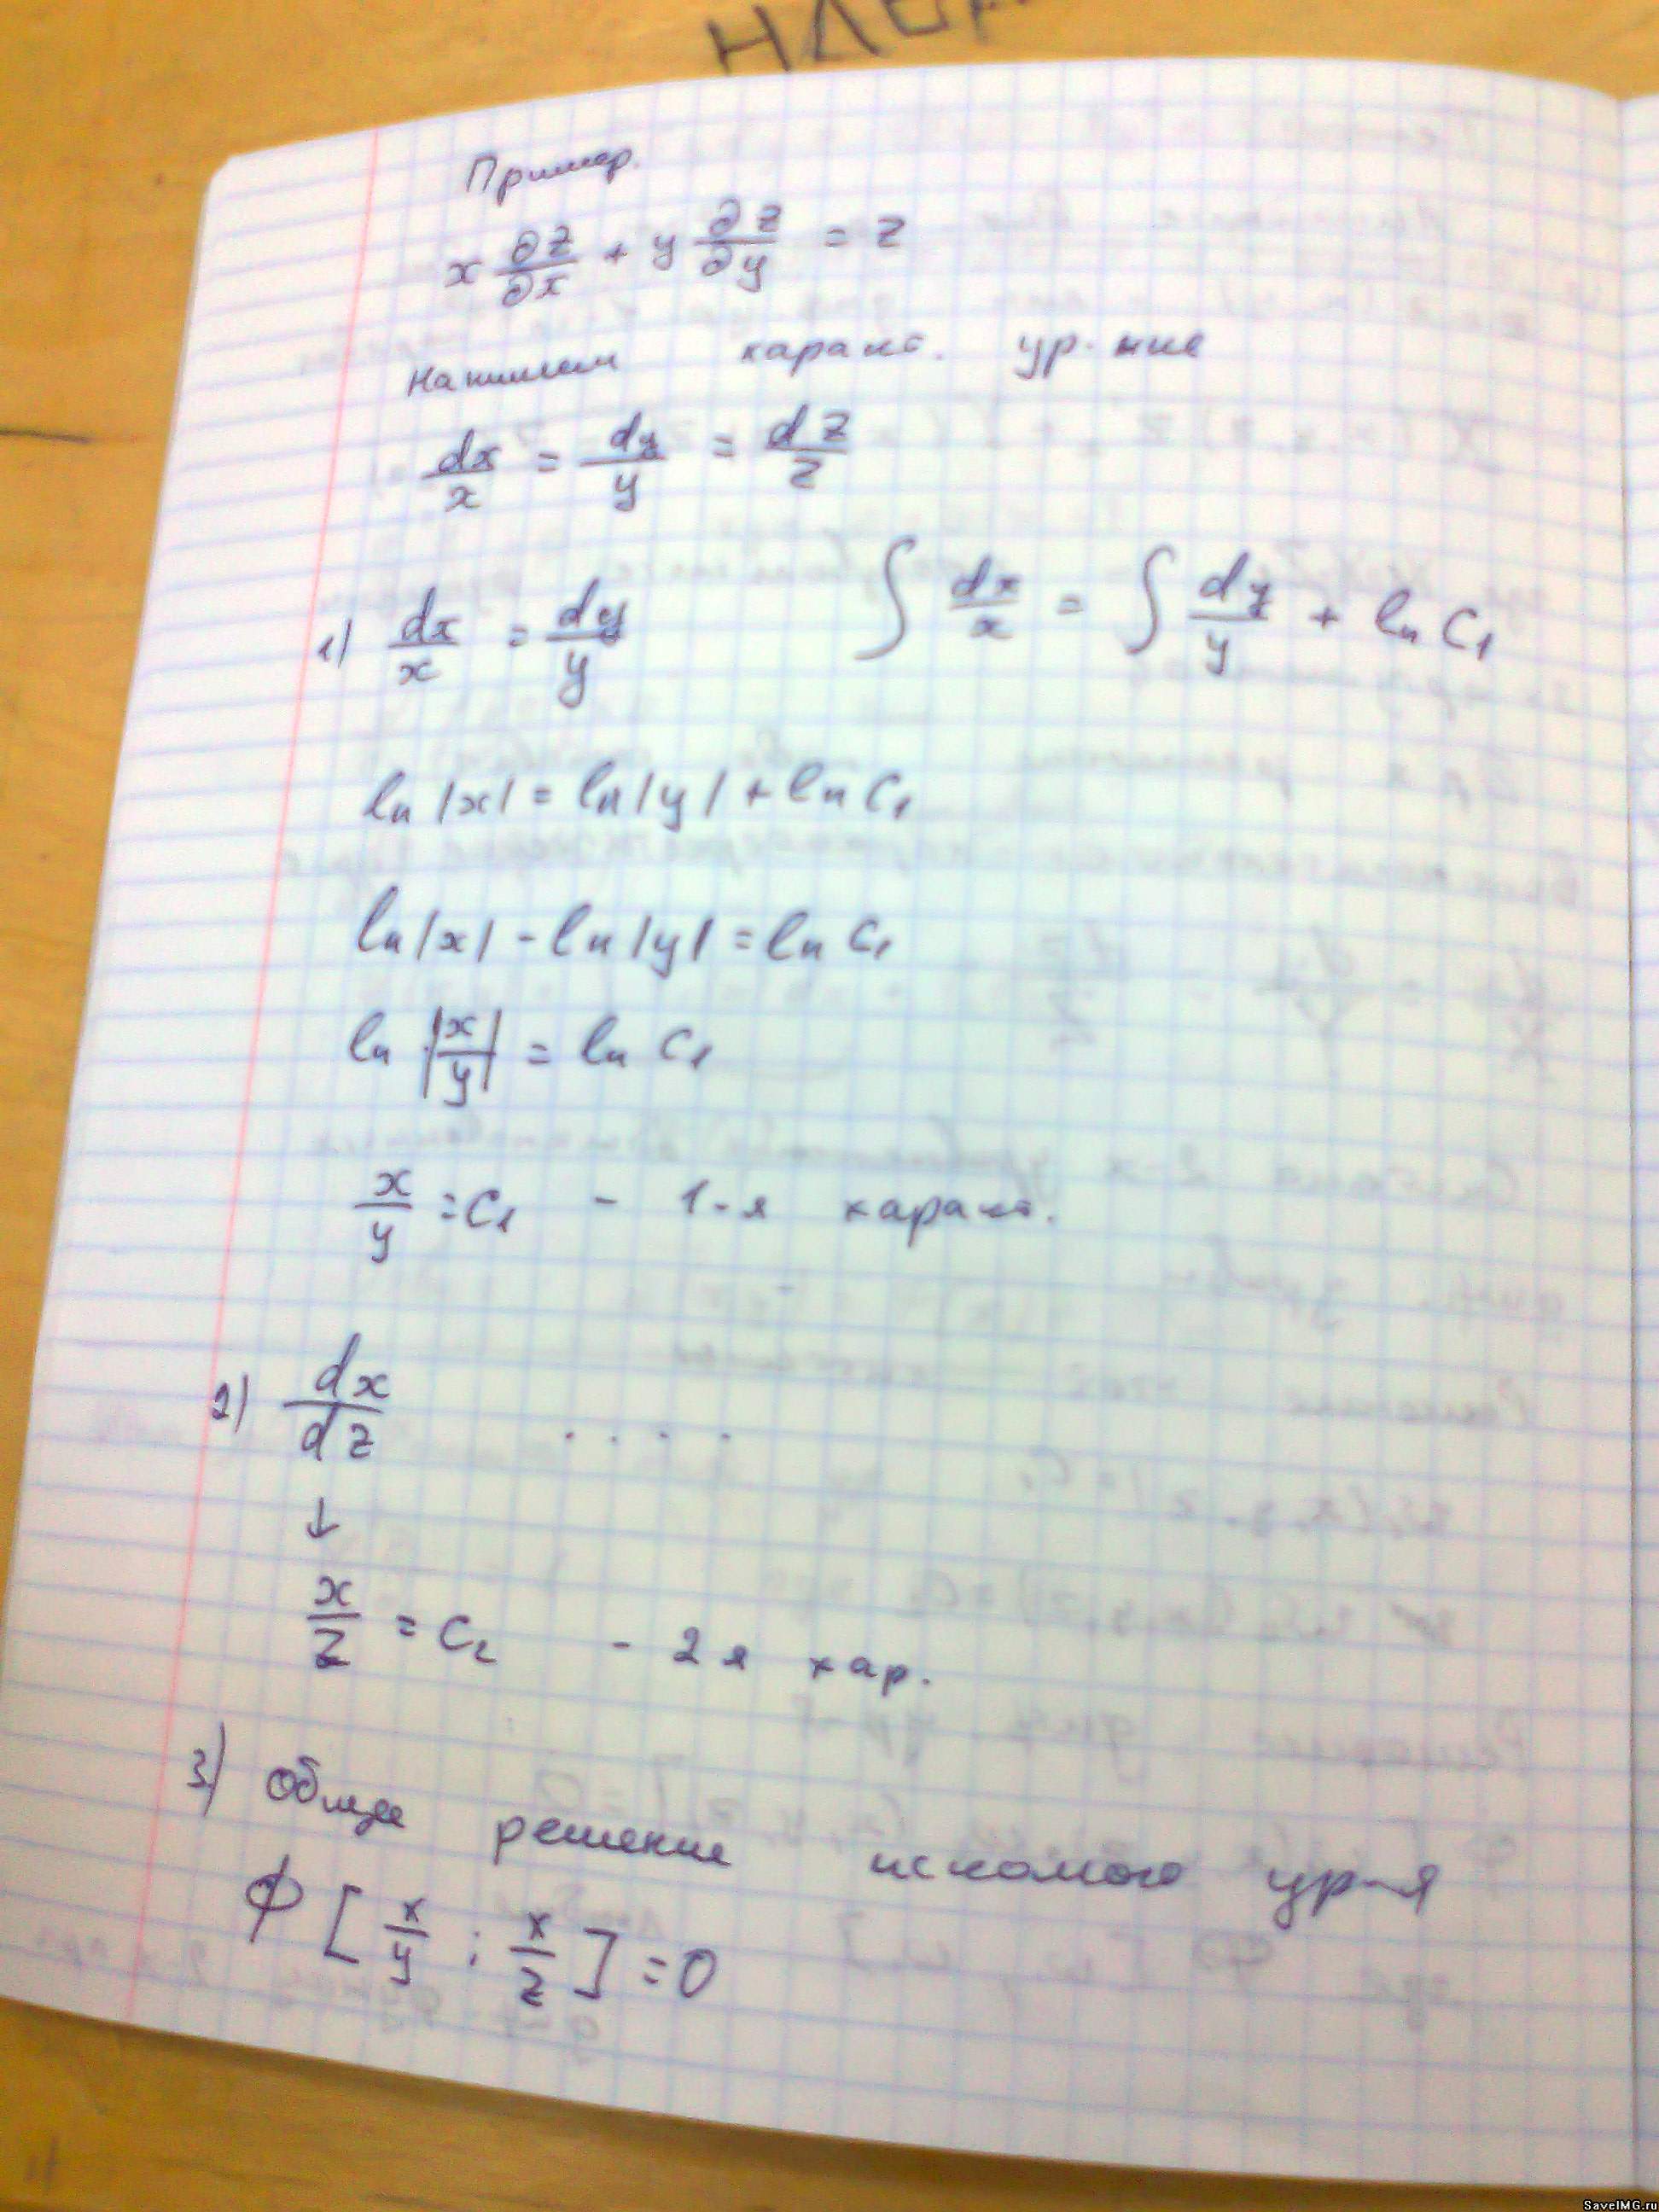 Пример.
x ∂z/∂x + y ∂z/∂y = z
Напишем характ. ур-ние
dx/x = dy/y = dz/z
1) dx/x = dy/y ∫ dx/x = ∫ dy/y + ln C₁
ln |x| = ln |y| + ln C₁
ln |x| - ln |y| = ln C₁
ln |x/y| = ln C₁
x/y = C₁ - 1-я характ.
2) dx/dz . . . .
↓
x/z = C₂ - 2я хар.
3) Общее решение искомого ур-я
Φ [ x/y ; x/z ] = 0
SaveIMG.ru